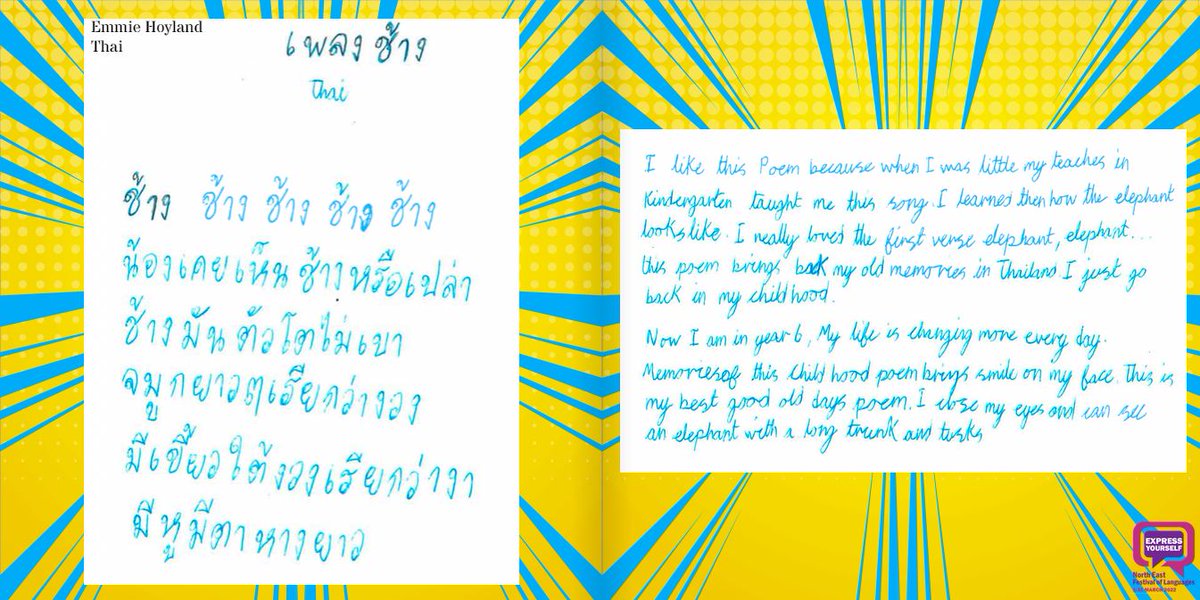 Emmie Hoyland
Thai
เพลง ช้าง
Thai
ช้าง ช้าง ช้าง ช้าง ช้าง
น้องเคยเห็นช้างหรือเปล่า
ช้างมันตัวโตไม่เบา
จมูกยาวๆเรียกว่างวง
มีเขี้ยวใต้งวงเรียกว่างา
มีหูมีตาหางยาว
I like this Poem because when I was little my teaches in
Kindergarten taught me this song. I learned then how the elephant
looks like. I really loved the first verse elephant, elephant...
this poem brings back my old memories in Thailand I just go
back in my childhood.
Now I am in year 6, My life is changing more every day.
Memories of this childhood poem brings smile on my face. This is
my best good old days poem. I close my eyes and can see
an elephant with a long trunk and tusks
EXPRESS
YOURSELF
North East
Festival of Languages
MARCH 2022